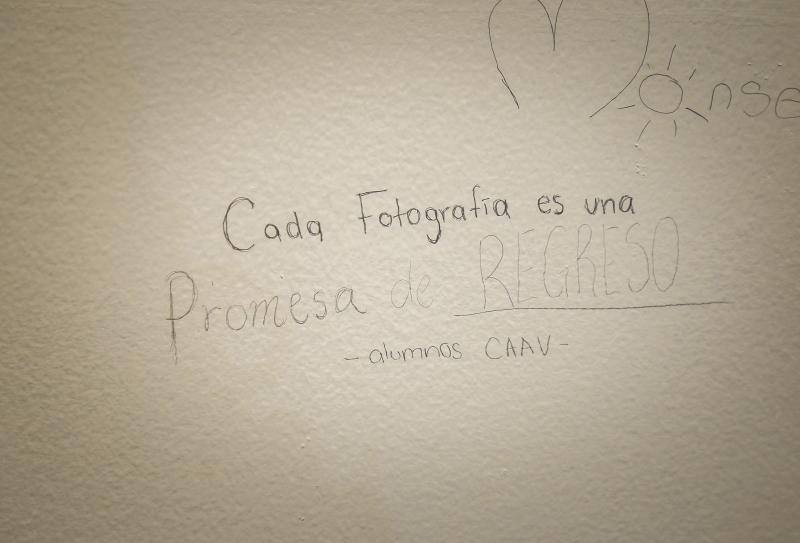 Cada Fotografía es una
Promesa de REGRESO
-alumnos CAAV-